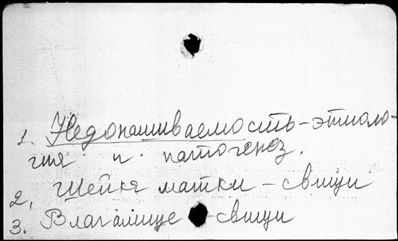 1. Недонашиваемость - этиоло-
гия и патогенез.
2. Шейка матки - свищи
3. Влагалище - свищи